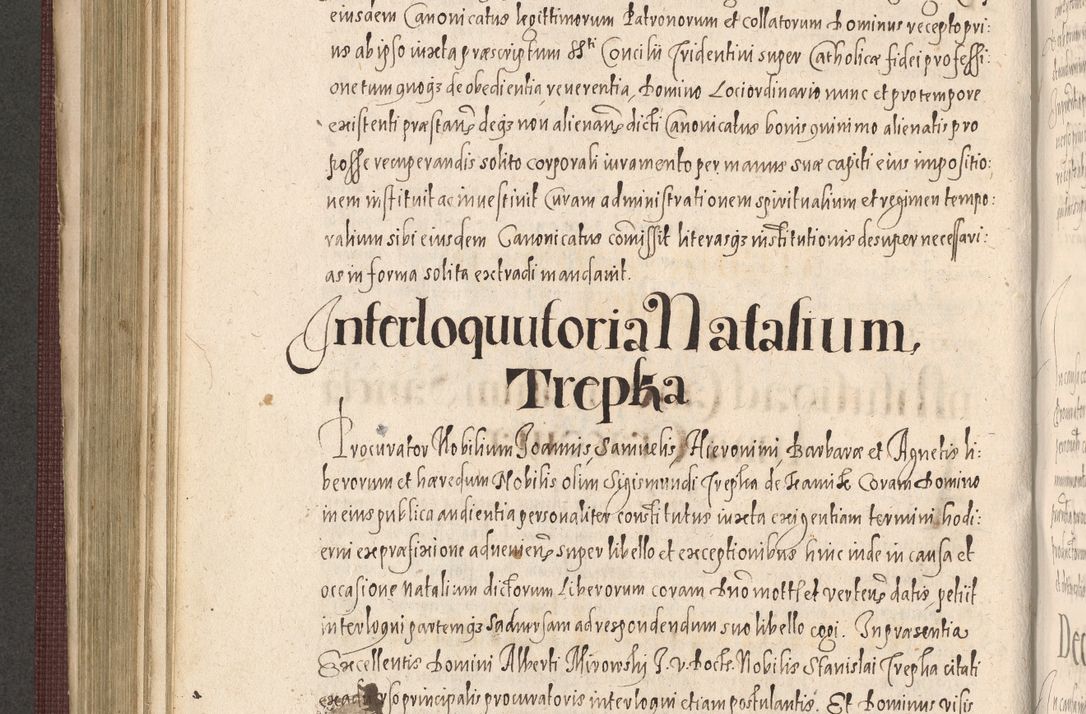 eiusdem Canonicatus legittimorum Patronorum et collatorum Dominus recepto pri:
us ab ipso iuxta præscriptum SSti Concilii Tridentini super Catholicæ fidei professi:
one tum quoqȝ de obedientia, reuerentia, Domino Loci ordinario nunc et pro tempore
existenti præstan deqȝ non alienan dicti Canonicatus bonis quinimo alienatis pro
posse recuperandis solito corporali iuramento per manus suæ capiti eius impositio:
nem instituit ac inuestiuit Curam administrationem spiritualium et regimen tempo:
ralium sibi eiusdem Canonicatus comissit literasqȝ institutionis desuper necessari:
as in forma solita extradi mandauit.
Interloquutoria Natalium,
Trepka
Procurator Nobilium Joannis, Samuelis, Hieronimi, Barbaræ et Agnetis li:
berorum et hæredum Nobilis olim Sigismundi Trepka de Coram Domino
in eius publica audientia personaliter constitutus iuxta exigentiam termini hodi:
erni ex præfixione aduenien super libello et exceptionibus hinc inde in causa et
occasione Natalium dictorum Liberorum coram Dno mot et verten datis, petiit
interloqui partemqȝ aduersam ad respondendum suo libello cogi. In præsentia
Excellentis Domini Alberti Mirowsky J. v. Doct. Nobilis Stanislai Trepka citati
principalis procuratoris interloqui etiam postulantis. Et Dominus visis
Dec